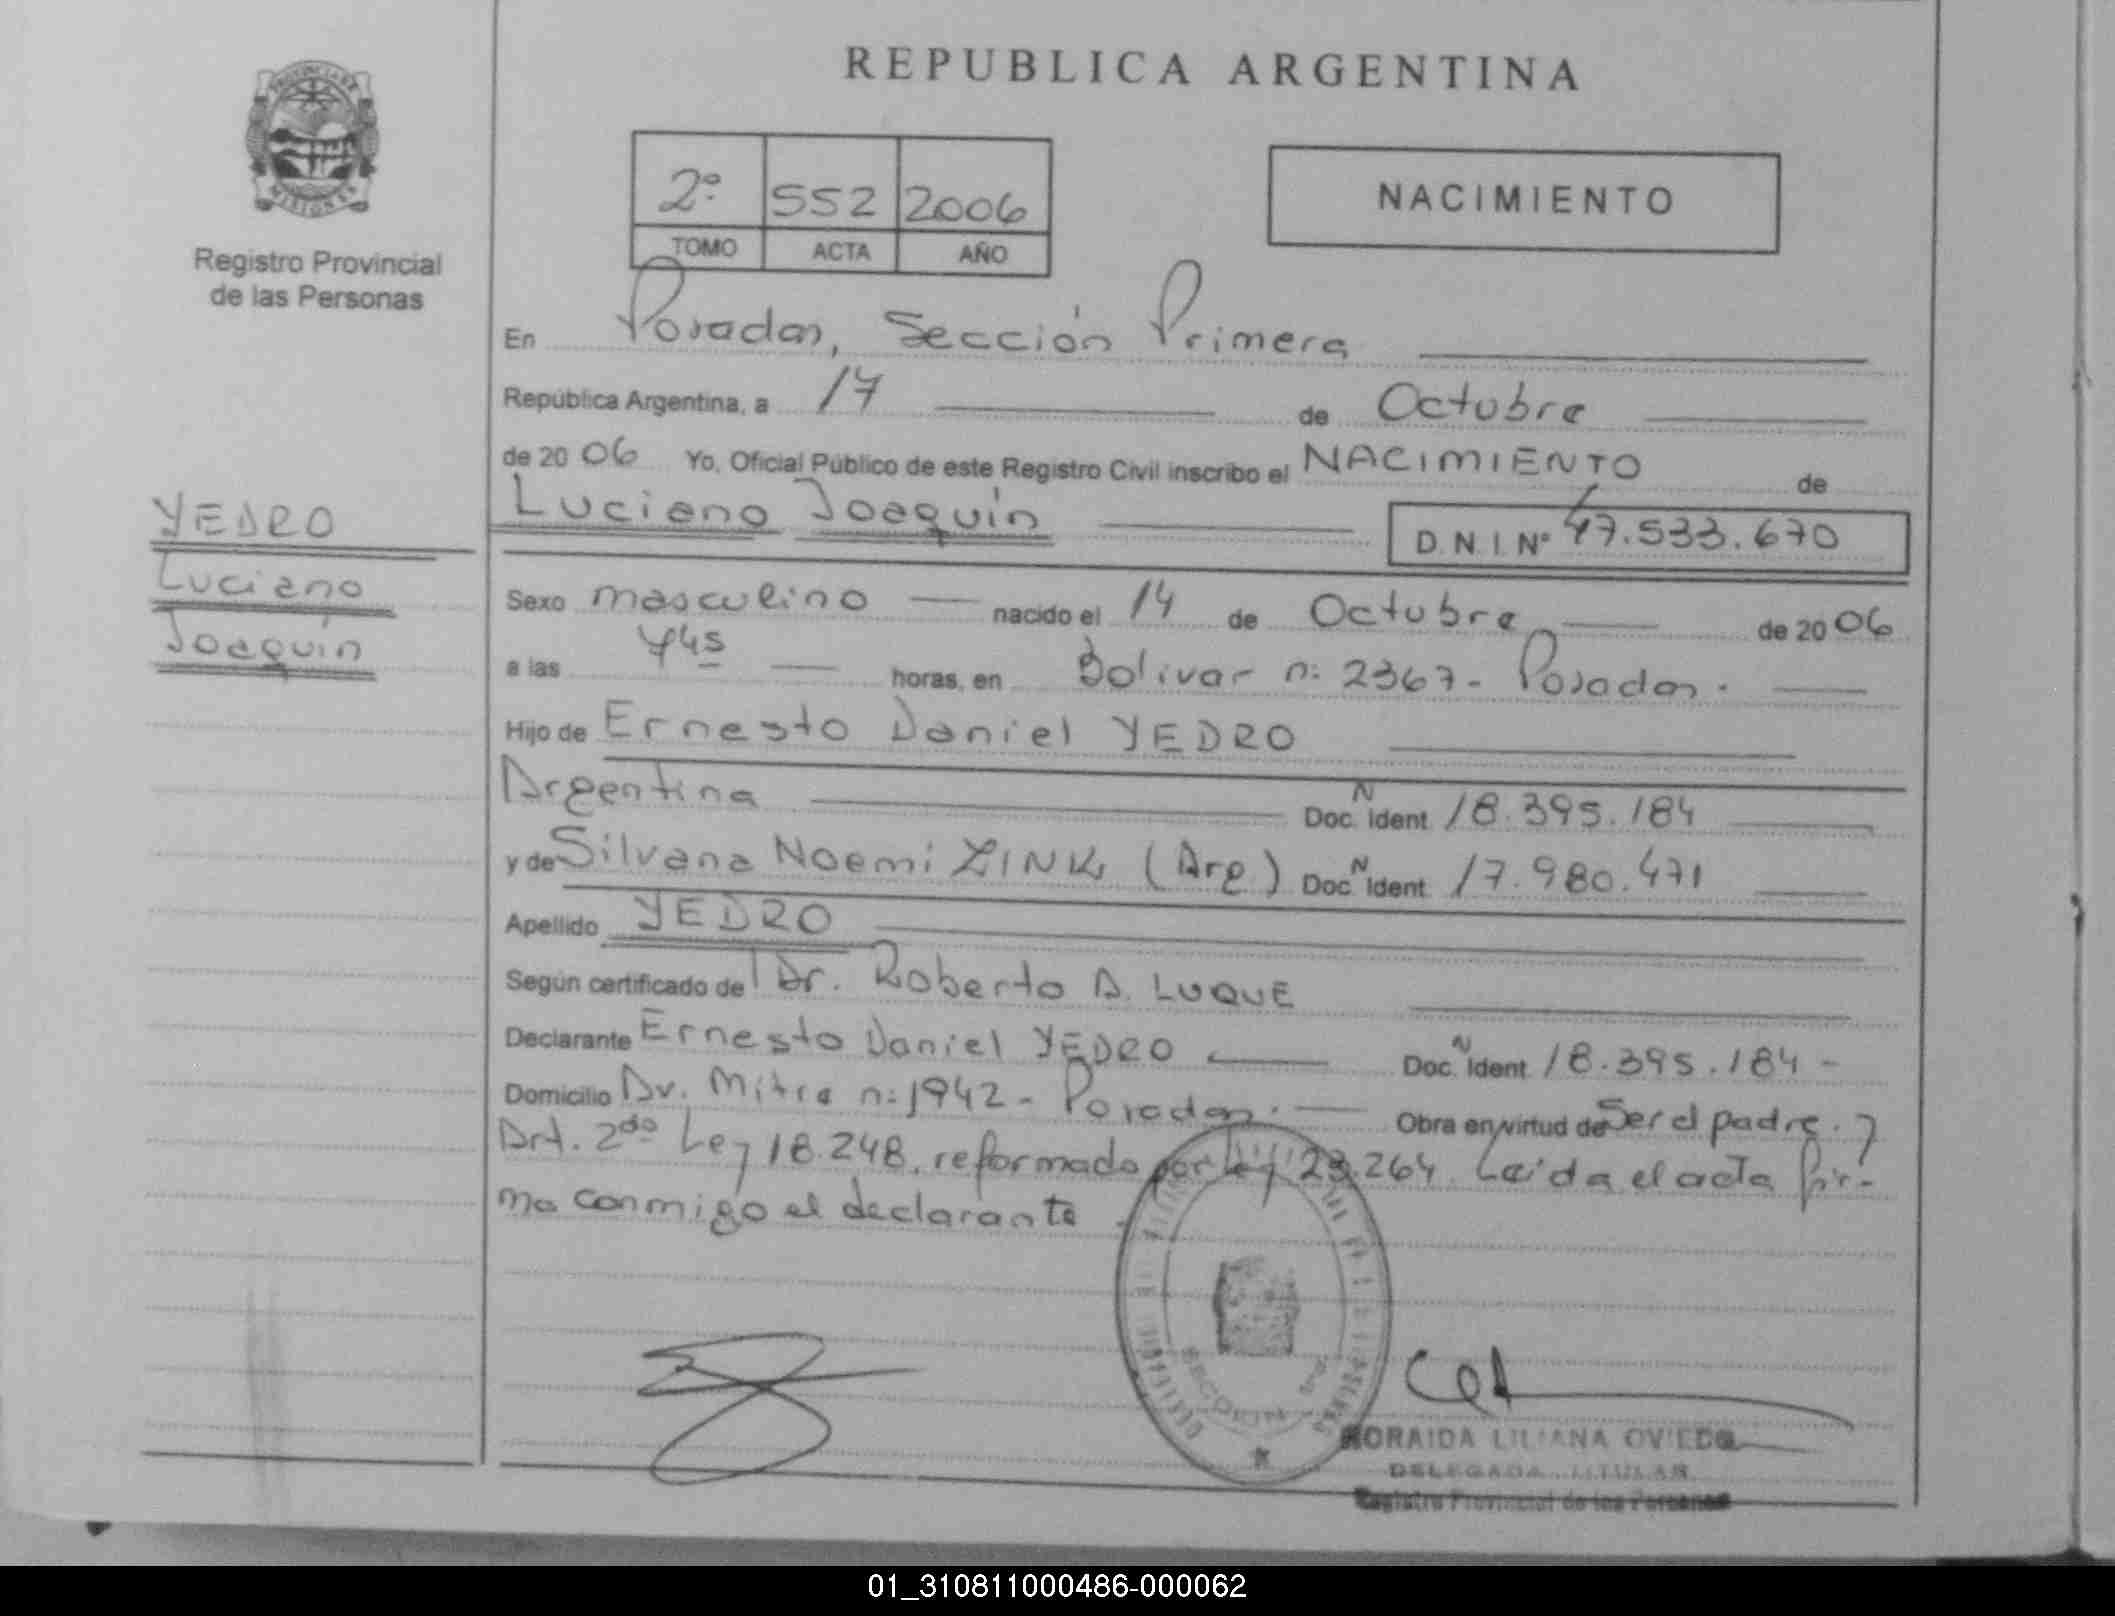 REPUBLICA ARGENTINA
PROVINCIA DE
MISIONES
Registro Provincial
de las Personas
2º 552 2006
TOMO ACTA AÑO
NACIMIENTO
En Posadas, Sección Primera
República Argentina, a 17 de Octubre
de 2006 Yo, Oficial Público de este Registro Civil inscribo el NACIMIENTO de
Luciano Joaquín D.N.I. Nº 47.533.670
YEDRO
Luciano
Joaquín
Sexo masculino nacido el 14 de Octubre de 2006
a las horas, en Bolivar n: 2367 - Posadas.
Hijo de Ernesto Daniel YEDRO
Argentina Doc. N Ident. 18.395.184
y de Silvana Noemi ZINK (Arg) Doc. N Ident. 17.980.471
Apellido YEDRO
Según certificado de Dr. Roberto A. LUQUE
Declarante Ernesto Daniel YEDRO Doc. N Ident. 18.395.184 -
Domicilio Av. Mitre n: 1942 - Posadas. Obra en virtud de Ser el padre. y
Art. 2do Ley 18.248, reformado por ley 23.264. Leída el acta fir-
ma conmigo el declarante
SECCION
LILIANA OVIEDO
DELEGADA TITULAR
Registro Provincial de las Personas
01_310811000486-000062